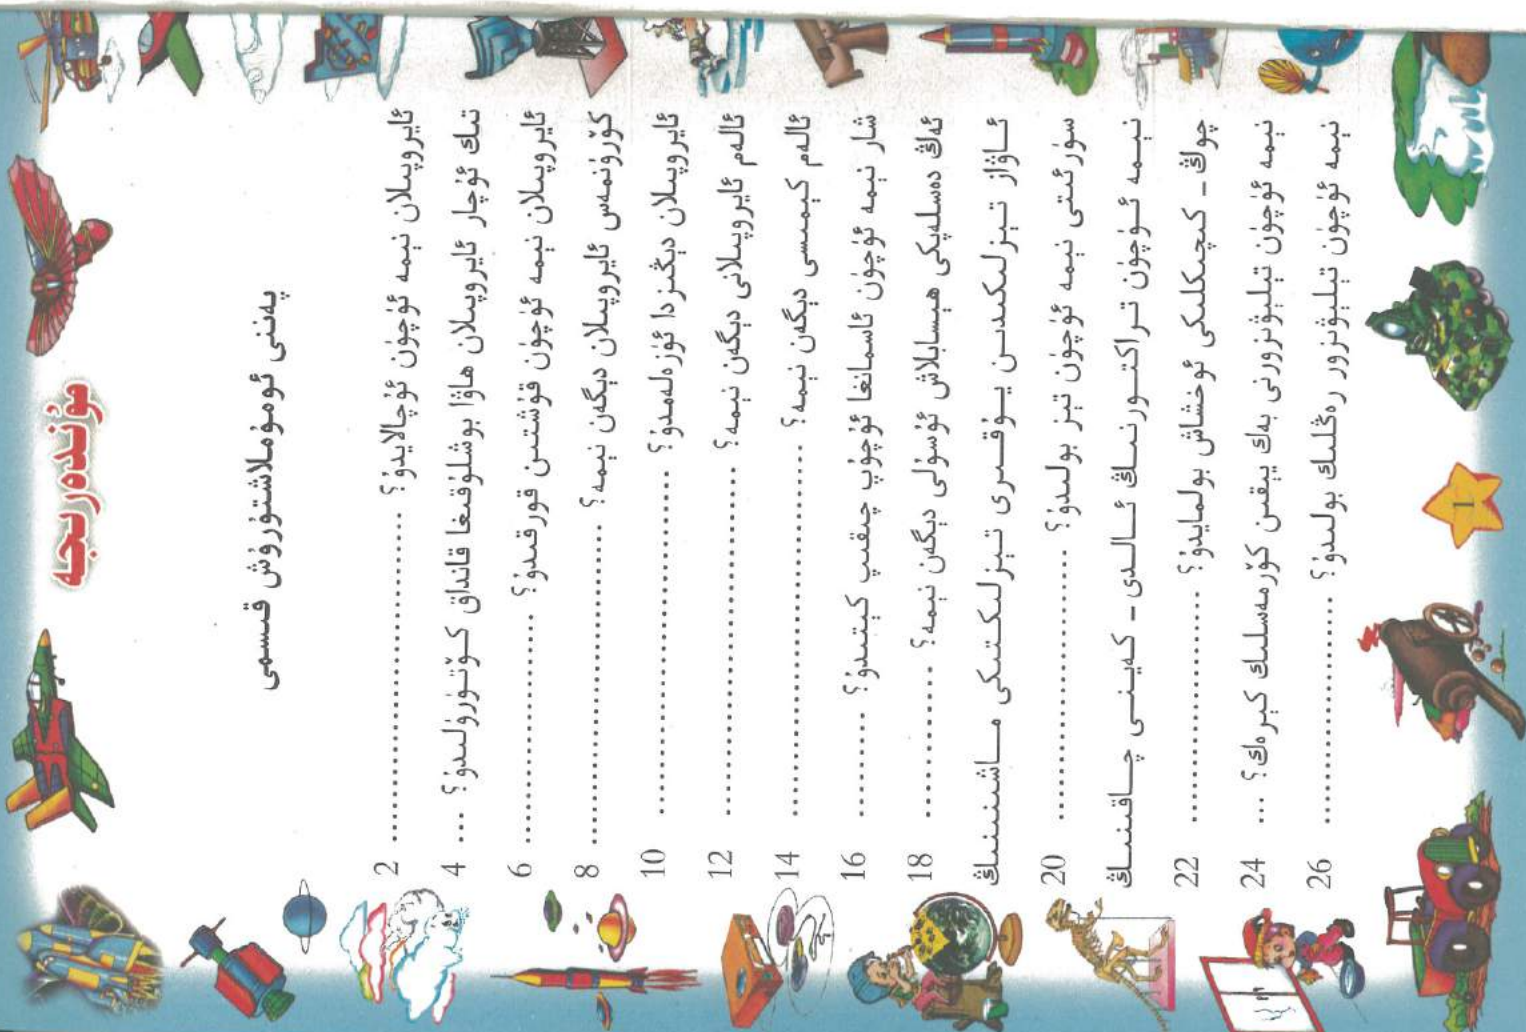 مۇندەرىجە
پەننى ئومۇملاشتۇرۇش قىسمى
ئايروپىلان نېمە ئۈچۈن ئۇچالايدۇ؟ ........ 2
تىك ئۇچار ئايروپىلان ھاۋا بوشلۇقىغا قانداق كۆتۈرۈلىدۇ؟ ... 4
ئايروپىلان نېمە ئۈچۈن قۇشتىن قورقىدۇ؟ ........ 6
كۆرۈنمەس ئايروپىلان دېگەن نېمە؟ ........ 8
ئايروپىلان دېڭىزدا ئۈزەلەمدۇ؟ ........ 10
ئالەم ئايروپىلانى دېگەن نېمە؟ ........ 12
ئالەم كېمىسى دېگەن نېمە؟ ........ 14
شار نېمە ئۈچۈن ئاسمانغا ئۇچۇپ چىقىپ كېتىدۇ؟ ........ 16
ئەڭ دەسلەپكى ھېسابلاش ئۇسۇلى دېگەن نېمە؟ ........ 18
ئاۋاز تېزلىكىدىن يۇقىرى تېزلىكتىكى ماشىنىنىڭ
سۈرئىتى نېمە ئۈچۈن تېز بولىدۇ؟ ........ 20
نېمە ئۈچۈن تراكتورنىڭ ئالدى - كەينى چاقىنىڭ
چوڭ - كىچىكلىكى ئوخشاش بولمايدۇ؟ ........ 22
نېمە ئۈچۈن تېلېۋىزورنى بەك يېقىن كۆرمەسلىك كېرەك؟ ... 24
نېمە ئۈچۈن تېلېۋىزور رەڭلىك بولىدۇ؟ ........ 26
1